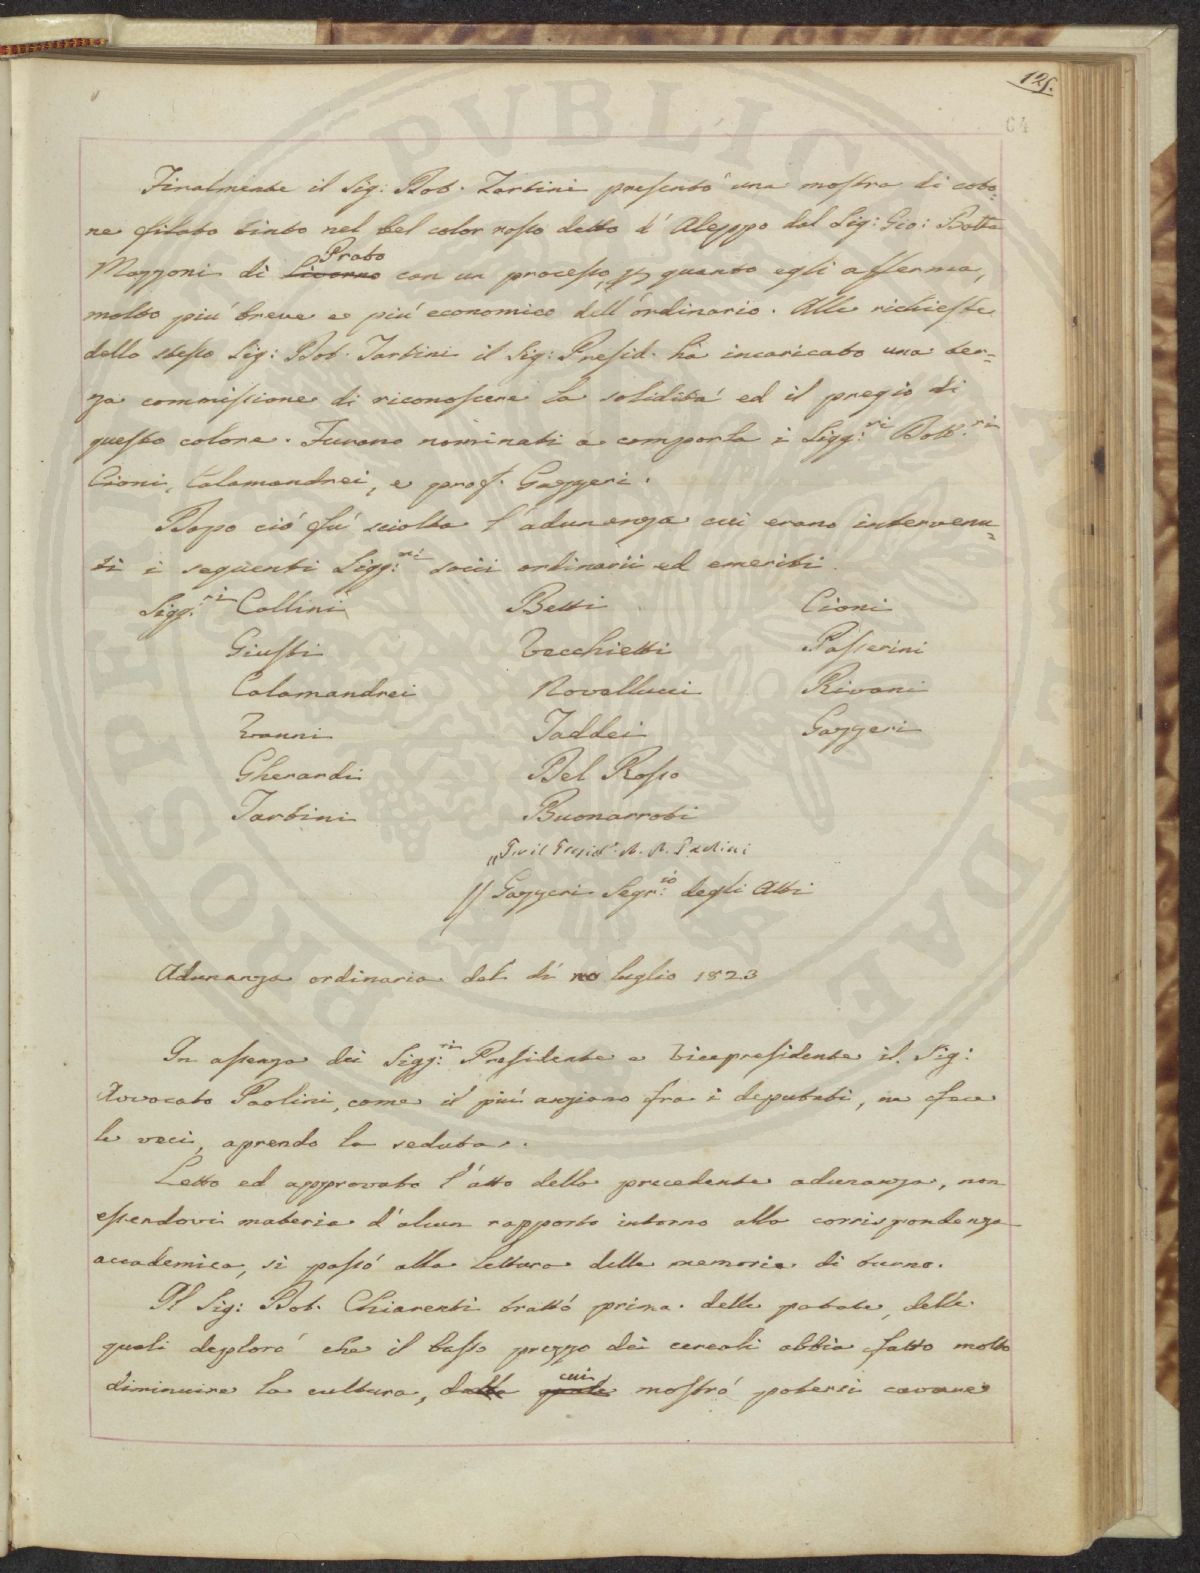 125.
64
Finalmente il Sig: Dot. Tartini presentò una mostra di coto=
ne filato tinto nel bel color rosso detto d'Aleppo dal Sig: Gio: Batta
Mazzoni di Livorno Prato con un processo, p quanto egli afferma,
molto piú breve e piú economico dell'ordinario. Alle richieste
dello stesso Sig: Dot. Tartini il Sig: Presid. ha incaricato una ter=
za commissione di riconoscere la solidità ed il pregio di
questo colore. Furono nominati a comporla i Sigg:ri Dott.ri
Cioni, Calamandrei, e prof. Gazzeri.
Dopo ciò fú sciolta l'adunanza cui erano intervenu=
ti i seguenti Sigg:ri socii ordinarii ed emeriti.
Sigg:ri Collini Betti Cioni
Giusti Vecchietti Passerini
Calamandrei Novellucci Rivani
Vanni Taddei Gazzeri
Gherardi Del Rosso
Tartini Buonarroti
" P. il Presid.e A. A. Paolini
// Gazzeri Segr:io degli Atti
Adunanza ordinaria del dí luglio 1823
In assenza dei Sigg:ri Presidente e Vicepresidente il Sig:
Avvocato Paolini, come il piú anziano fra i deputati, ne fece
le veci, aprendo la seduta.
Letto ed approvato l'atto della precedente adunanza, non
essendovi materia d'alcun rapporto intorno alla corrispondenza
accademica, si passó alla lettura delle memorie di turno.
Il Sig: Dot. Chiarenti trattó prima delle patate, delle
quali deploró che il basso prezzo dei cereali abbia fatto molto
diminuire la cultura, dalla quale cui mostró potersi cavare
PROSPERITATI PVBLICAE AVGENDAE